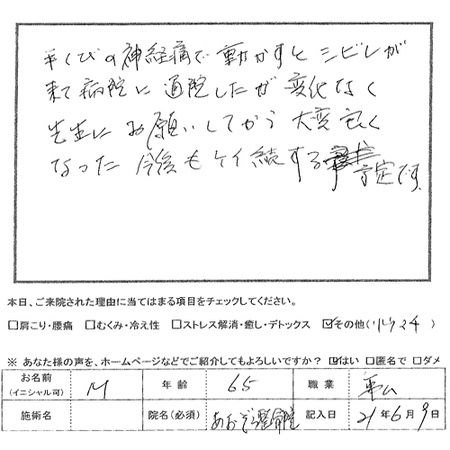 手くびの神経痛で動かすとシビレが
来て病院に通院したが変化なく
先生にお願いしてから大変良く
なった 今後もケイ続する予定です
本日、ご来院された理由に当てはまる項目をチェックしてください。
□肩こり・腰痛 □むくみ・冷え性 □ストレス解消・癒し・デトックス ☑その他(リウマチ)
※ あなた様の声を、ホームページなどでご紹介してもよろしいですか？ ☑はい □匿名で □ダメ
お名前(イニシャル可) M 年齢 65 職業
施術名 院名(必須) あおぞら整骨院 記入日 21年6月9日